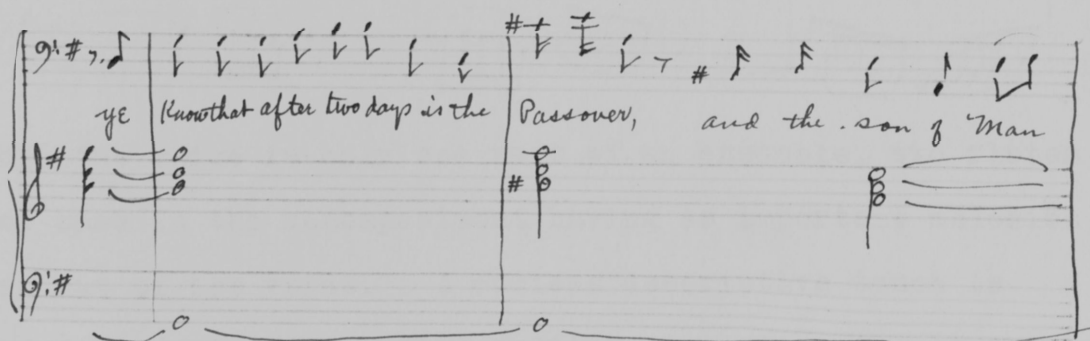 ye Know that after two days is the Passover, and the son of Man